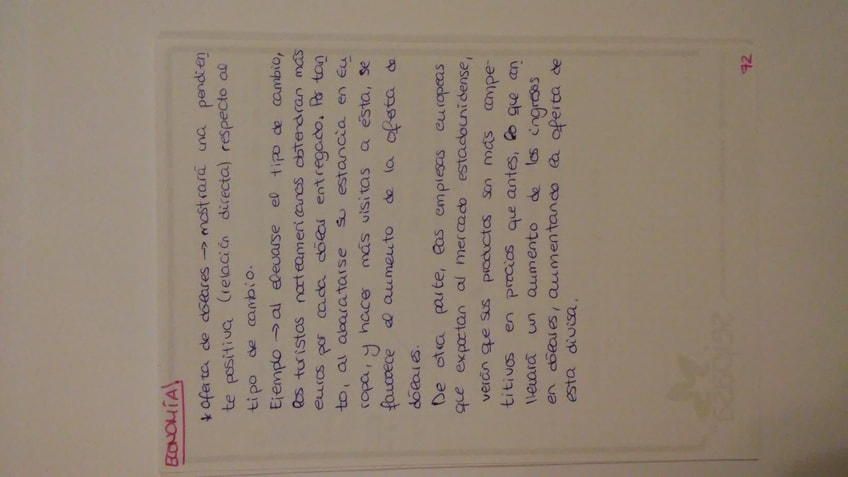 ECONOMÍA
* Oferta de dólares → mostrará una pendien
te positiva (relación directa) respecto al
tipo de cambio.
Ejemplo → al elevarse el tipo de cambio,
los turistas norteamericanos obtendrán más
euros por cada dólar entregado. Por tan
to, al abaratarse su estancia en Eu
ropa, y hacer más visitas a ésta, se
favorece el aumento de la oferta de
dólares.
De otra parte, las empresas europeas
que exportan al mercado estadounidense,
verán que sus productos son más compe
titivos en precios que antes, lo que con
llevará un aumento de los ingresos
en dólares, aumentando la oferta de
esta divisa.
92